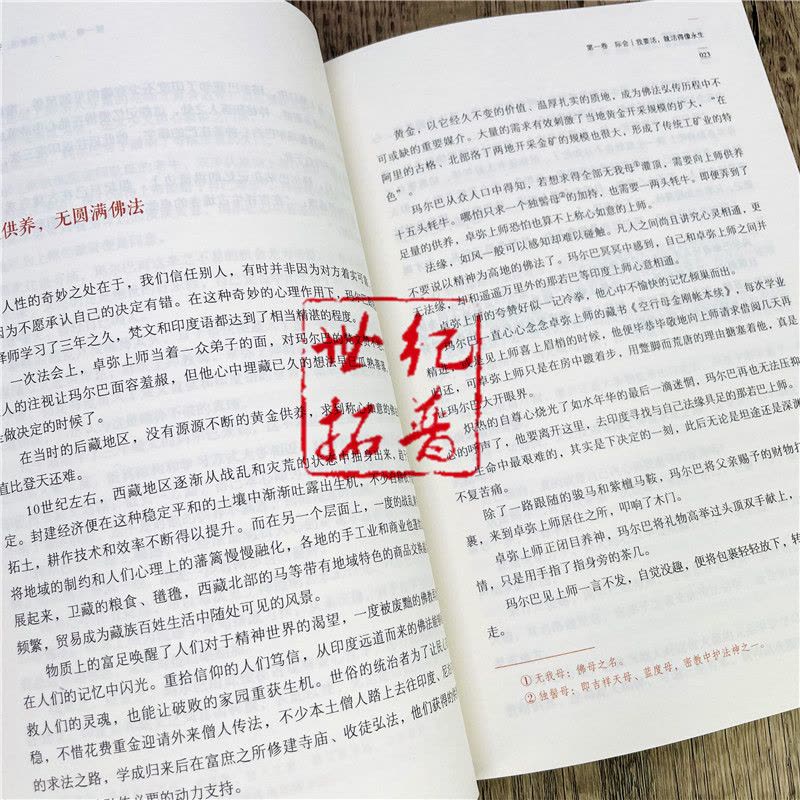 供养，无圆满佛法
人性的奇妙之处在于，我们信任别人，有时并非因为对方着实可
因为不愿承认自己的决定有错。在这种奇妙的心理作用下，玛尔巴
译师学习了三年之久，梵文和印度语都达到了相当精湛的程度。
一次法会上，卓弥上师当着一众弟子的面，对玛尔巴
人的注视让玛尔巴面容羞赧，但他心中埋藏已久的想法早已瓜熟蒂落
做决定的时候了。
在当时的后藏地区，没有源源不断的黄金供养，求到称心如意的
直比登天还难。
10世纪左右，西藏地区逐渐从战乱和灾荒的状态中抽身出来，
定。封建经济便在这种稳定平和的土壤中渐渐吐露出生机，不少
拓土，耕作技术和效率不断得以提升。而在另一个层面上，一度的战乱
将地域的制约和人们心理上的藩篱慢慢融化，各地的手工业和商业也逐
展起来，卫藏的粮食、氆氇，西藏北部的马等带有地域特色的商品交换
频繁，贸易成为藏族百姓生活中随处可见的风景。
物质上的富足唤醒了人们对于精神世界的渴望，一度被废黜的佛教
在人们的记忆中闪光。重拾信仰的人们笃信，从印度远道而来的佛法能够
救人们的灵魂，也能让破败的家园重获生机。世俗的统治者为了让民心
稳，不惜花费重金迎请外来僧人传法，不少本土僧人踏上去往印度、尼泊
的求法之路，学成归来后在富庶之所修建寺庙、收徒弘法，他们获得的
必要的动力支持。
第一卷 际会｜我要活，就活得像永生
023
黄金，以它经久不变的价值、温厚扎实的质地，成为佛法弘传历程中不
可或缺的重要媒介。大量的需求有效刺激了当地黄金开采规模的扩大，“在
阿里的古格，北部洛丁两地开采金矿的规模也很大，形成了传统工矿业的特
色”。
玛尔巴从众人口中得知，若想求得全部无我母①灌顶，需要向上师供养
十五头牦牛。哪怕只求一个独髻母②的加持，也需要一两头牦牛。即便弄到了
足量的供养，卓弥上师恐怕也算不上称心如意的上师。
法缘，如风一般可以感知却难以碰触。凡人之间尚且讲究心灵相通，更
不要说以精神为高地的佛法了。玛尔巴冥冥中感到，自己和卓弥上师之间并
无法缘，却和遥遥万里外的那若巴等印度上师心意相通。
卓弥上师的夸赞好似一记冷拳，他心中不愉快的记忆倾巢而出。
玛尔巴一直心心念念卓弥上师的藏书《空行母金刚帐本续》，每次学业
精进，或是见上师喜上眉梢的时候，他便毕恭毕敬地向上师请求借阅几天再
归还，可卓弥上师只是在房中踱着步，用蹩脚而荒唐的理由搪塞着他，真是
让玛尔巴大开眼界。
炽热的自尊心烧光了如水年华的最后一滴迷惘，玛尔巴再也无法压抑
的呼声了，他要离开这里，去印度寻找与自己法缘具足的那若巴上师。
生命中最艰难的，其实是下决定的一刻，此后无论是坦途还是深渊
不复苦痛。
除了一路跟随的骏马和紫檀马鞍，玛尔巴将父亲赐予的财物
裹，来到卓弥上师居住之所，叩响了木门。
卓弥上师正闭目养神，玛尔巴将礼物高举过头顶双手献上，
情，只是用手指了指身旁的茶几。
玛尔巴见上师一言不发，自觉没趣，便将包裹轻轻放下，转
走。
①无我母：佛母之名。
②独髻母：即吉祥天母、蓝度母，密教中护法神之一。
世纪
拓普